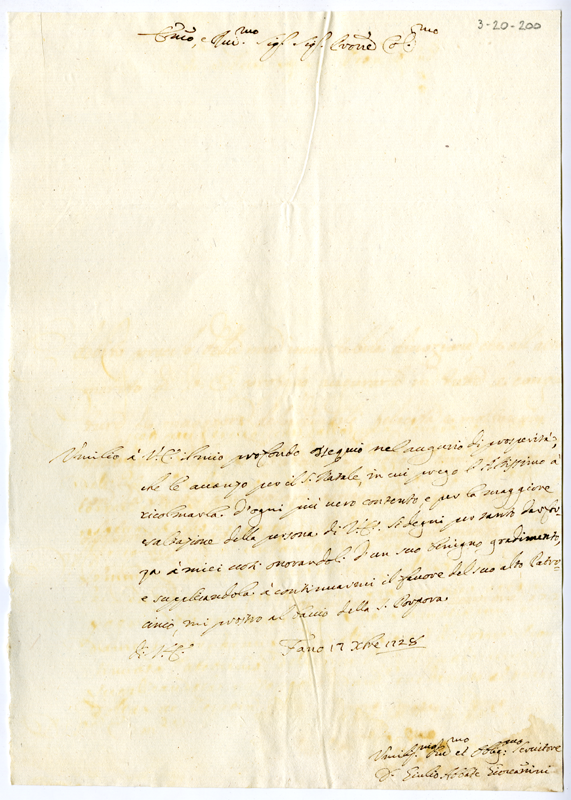 3-20-200
Em̃o, e Rm̃o. Sigr. Sigr. Prõne Col.mo
Umilio à V. E. il mio profondo ossequio nel augurio di prosperità,
che le avanzo per il S. Natale, in cui prego l'Altissimo à
ricolmarla d'ogni più vero contento, e per la maggiore
esaltazione della persona di V. E. Si degni per tanto dar for-
za à miei voti onorandoli d'un suo benigno gradimento,
e supplicandola à continuarci il favore del suo alto Patro-
cinio, mi prostro al bacio della S. Porpora
di V. E. Fano 17 Xbre 1728
Umiliss.mo Dev.mo et Obblig.mo Servitore
D. Giulio Abbate